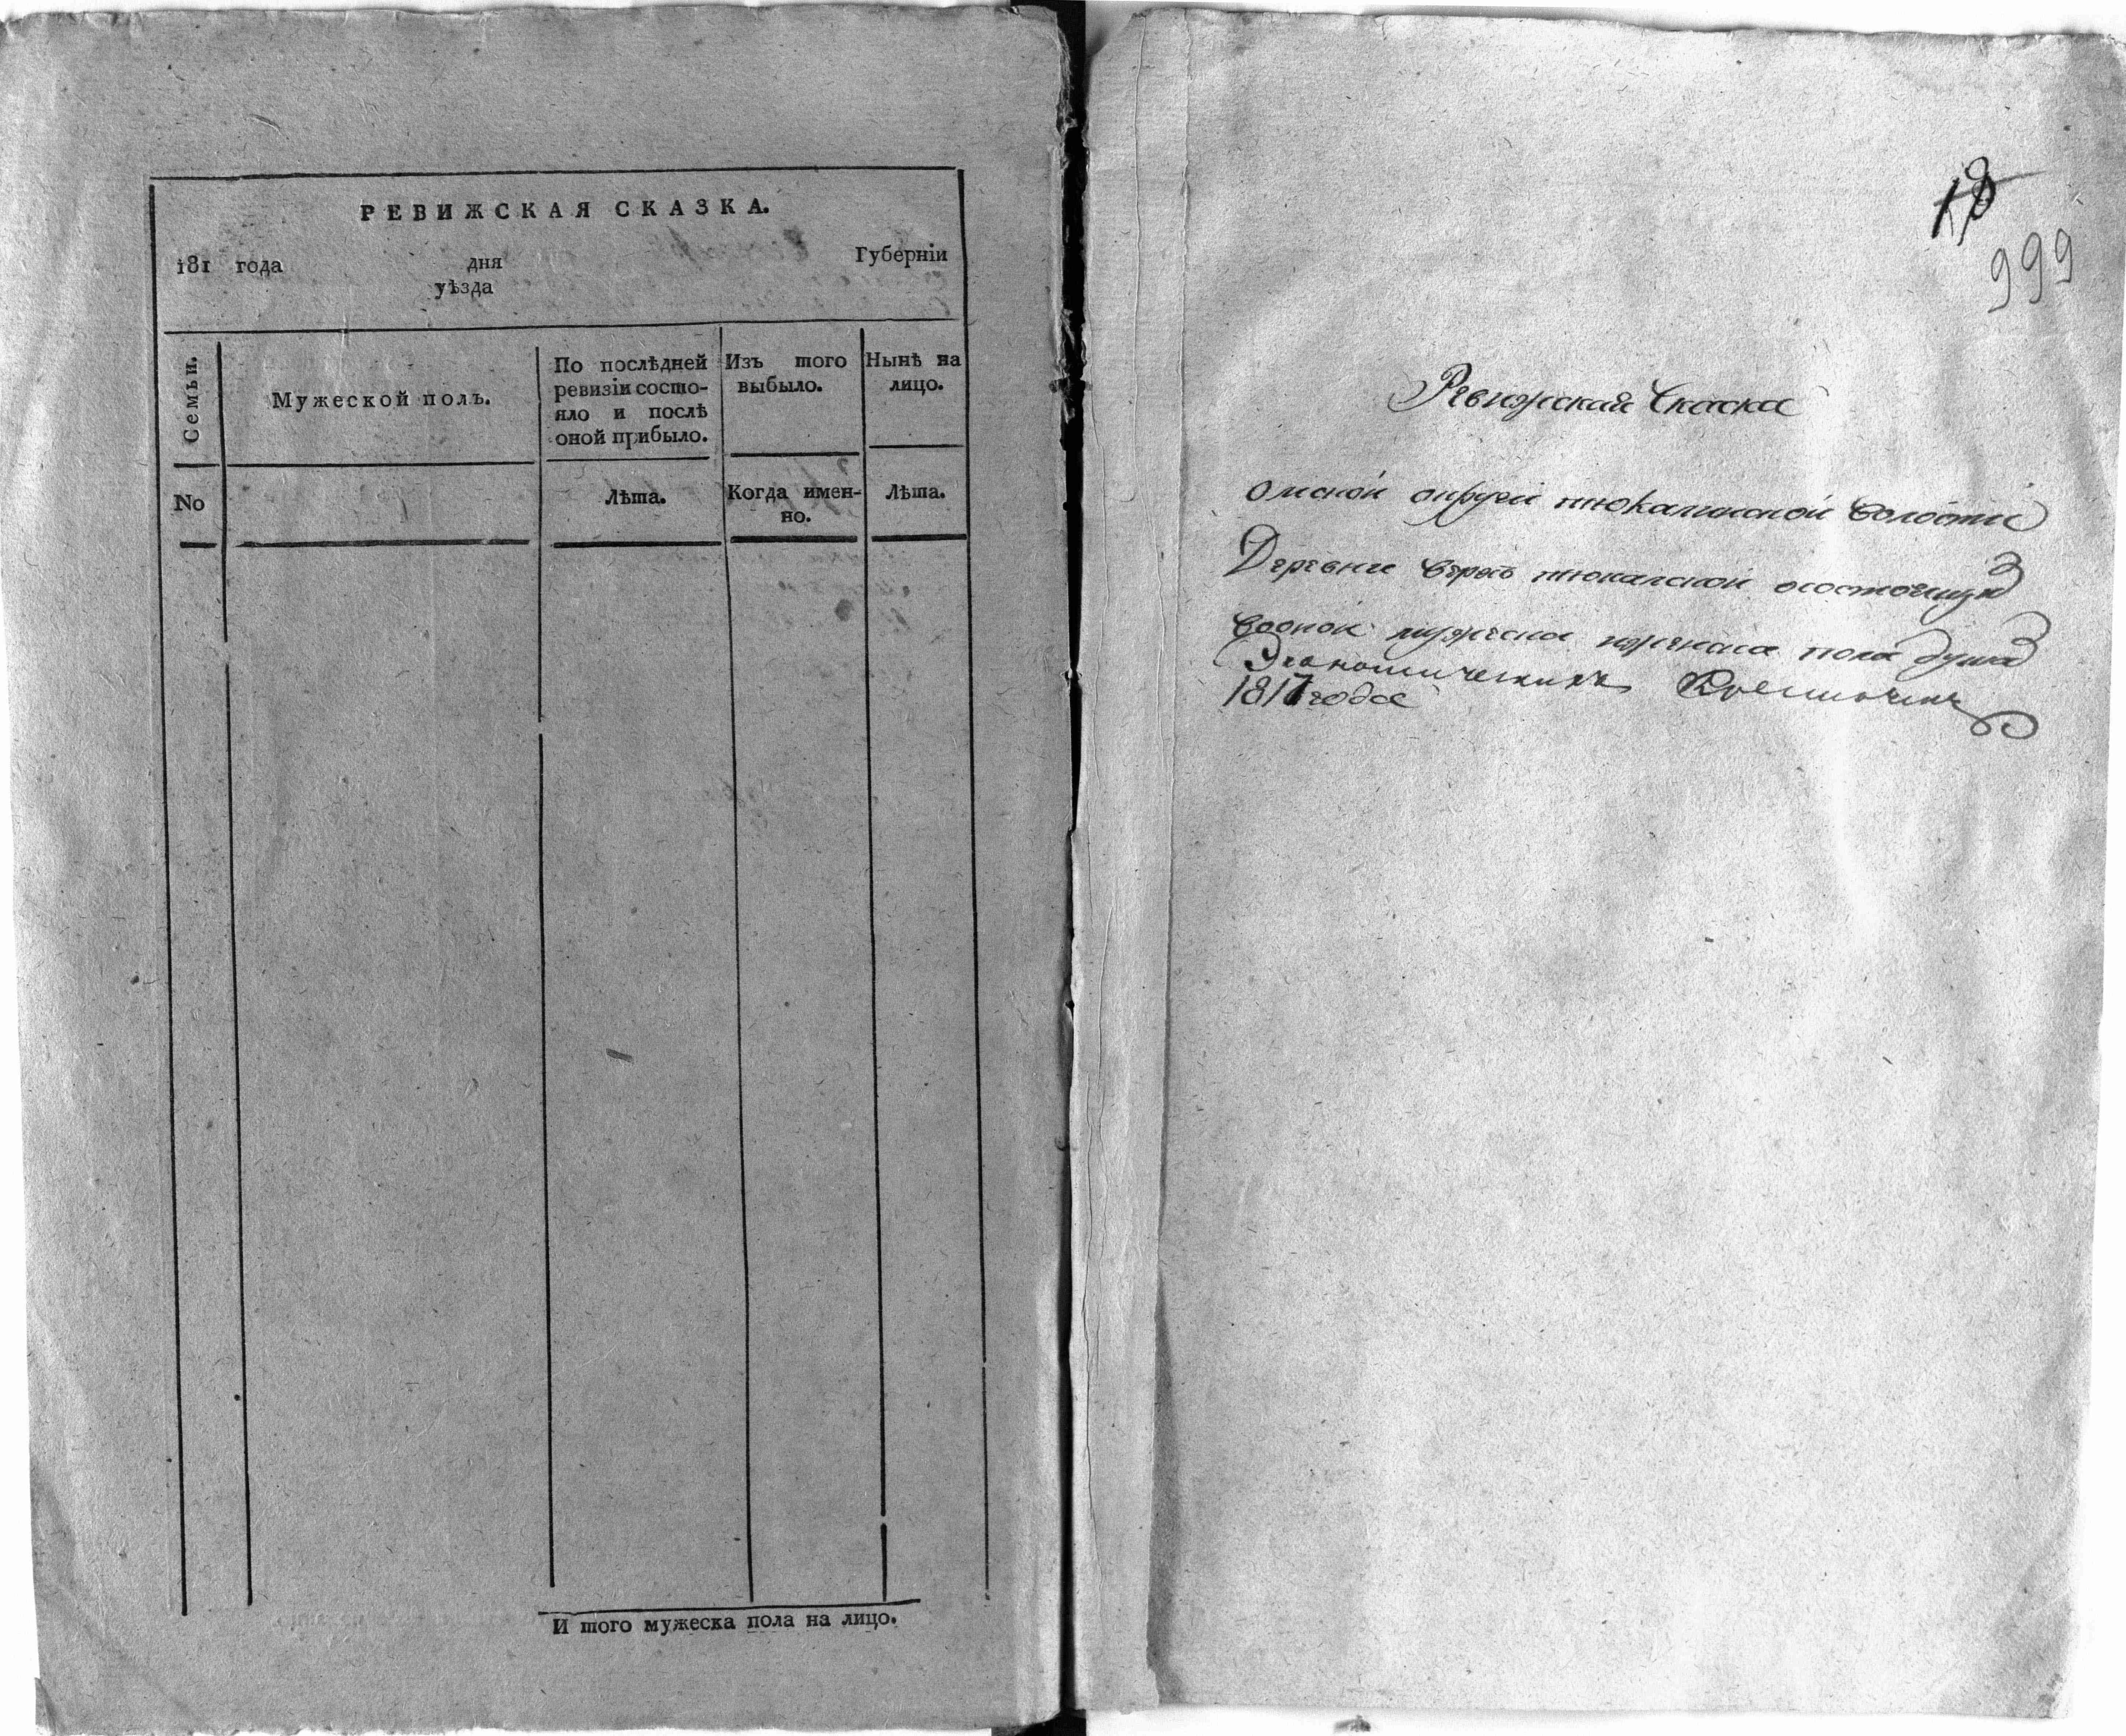 РЕВИЖСКАЯ СКАЗКА.
181 года дня Губерніи
уѣзда
Семьи.
Мужеской полъ.
По послѣдней
ревизіи состо-
яло и послѣ
оной прибыло.
Изъ того
выбыло.
Нынѣ на
лицо.
No
Лѣта.
Когда имен-
но.
Лѣта.
И того мужеска пола на лицо.
18
999
Ревижская Скаска
омской округи тюкалинской волости
Деревни верхъ тюкалской осостоящих
воной мужеска иженска пола душах
Экономических Крестьянъ
1817 года